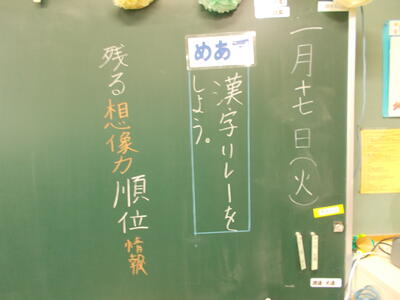 一月十七日(火)
めあて
漢字リレーを
しよう。
残る想像力順位情報